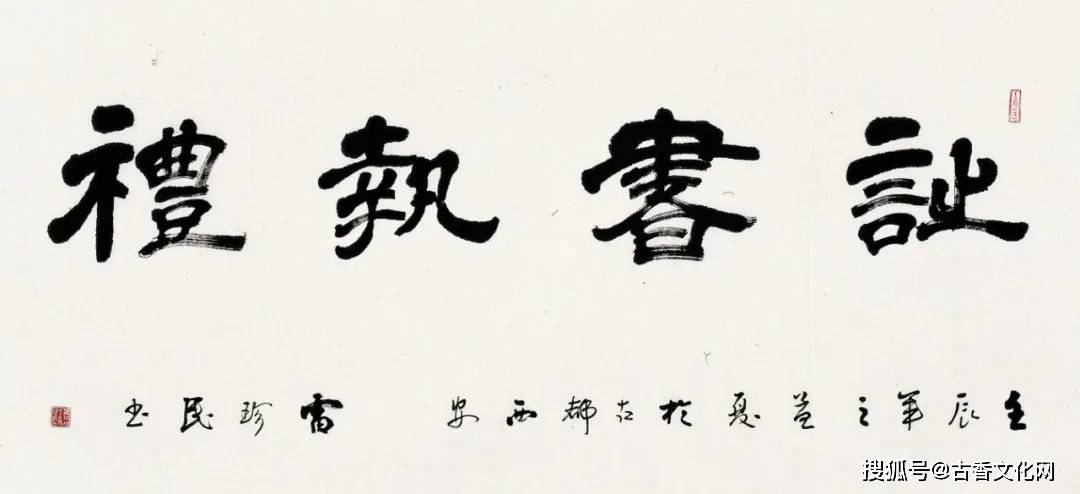 詩書執禮
壬辰年之孟夏於古都西安 雷珍民书
搜狐号@古香文化网